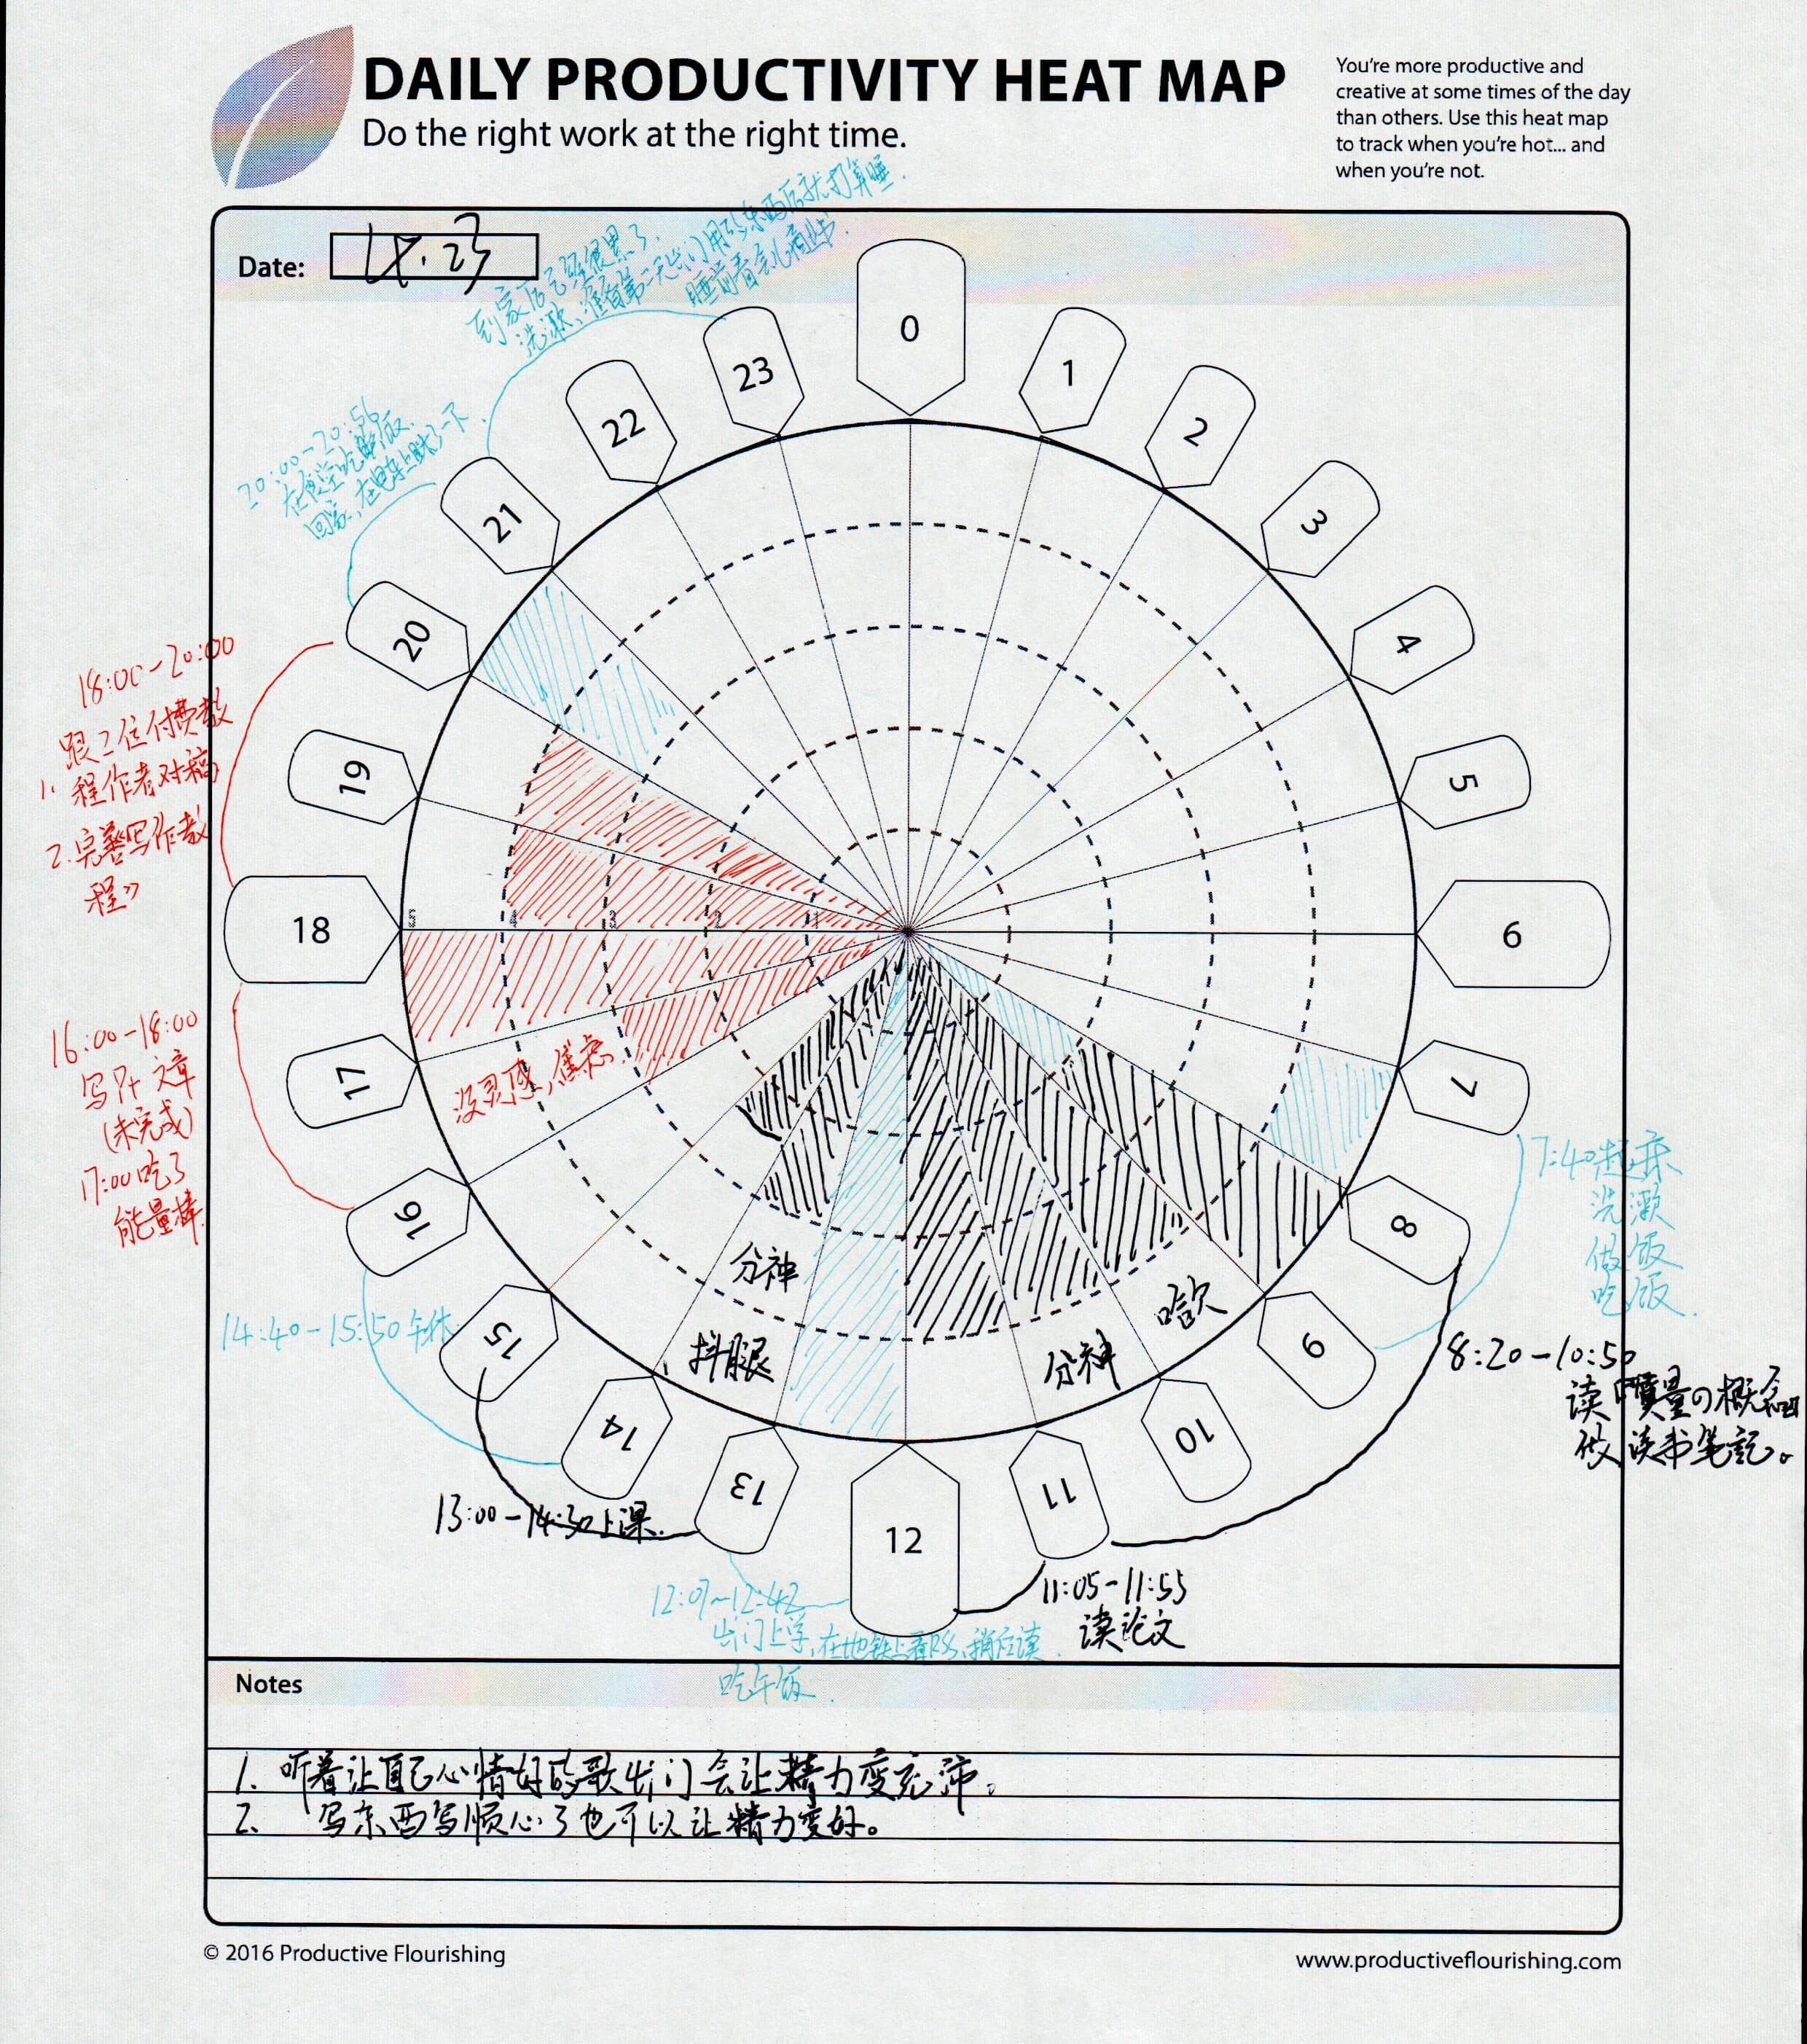 DAILY PRODUCTIVITY HEAT MAP
Do the right work at the right time.
You're more productive and
creative at some times of the day
than others. Use this heat map
to track when you're hot... and
when you're not.
Date:
到家后已经很累了.
洗漱、准备第二天出门用的东西后就打算睡.
睡前看会儿
20:00-20:56
在食堂吃晚饭.
回家,在电车上眯了一下.
0
1
2
3
4
5
6
7
8
9
10
11
12
13
14
15
16
17
18
19
20
21
22
23
5
4
3
2
1
18:00-20:00
1. 跟2位付费教
程作者对稿
2. 完善写作教
程》
16:00-18:00
写P+文章
(未完成)
17:00吃了
能量棒.
没灵感,焦虑.
7:40起床
洗漱
做饭
吃饭.
8:20-10:50
读 の概念
做读书笔記。
哈欠
分神
抖腿
分神
14:40-15:50午休
13:00-14:30上课.
11:05-11:55
读论文
12:07~12:42
出门上学,在地铁上看RSS、稍后读.
吃午饭.
Notes
1. 听着让自己心情好的歌出门会让精力变充沛。
2. 写东西写顺心了也可以让精力变好。
© 2016 Productive Flourishing
www.productiveflourishing.com